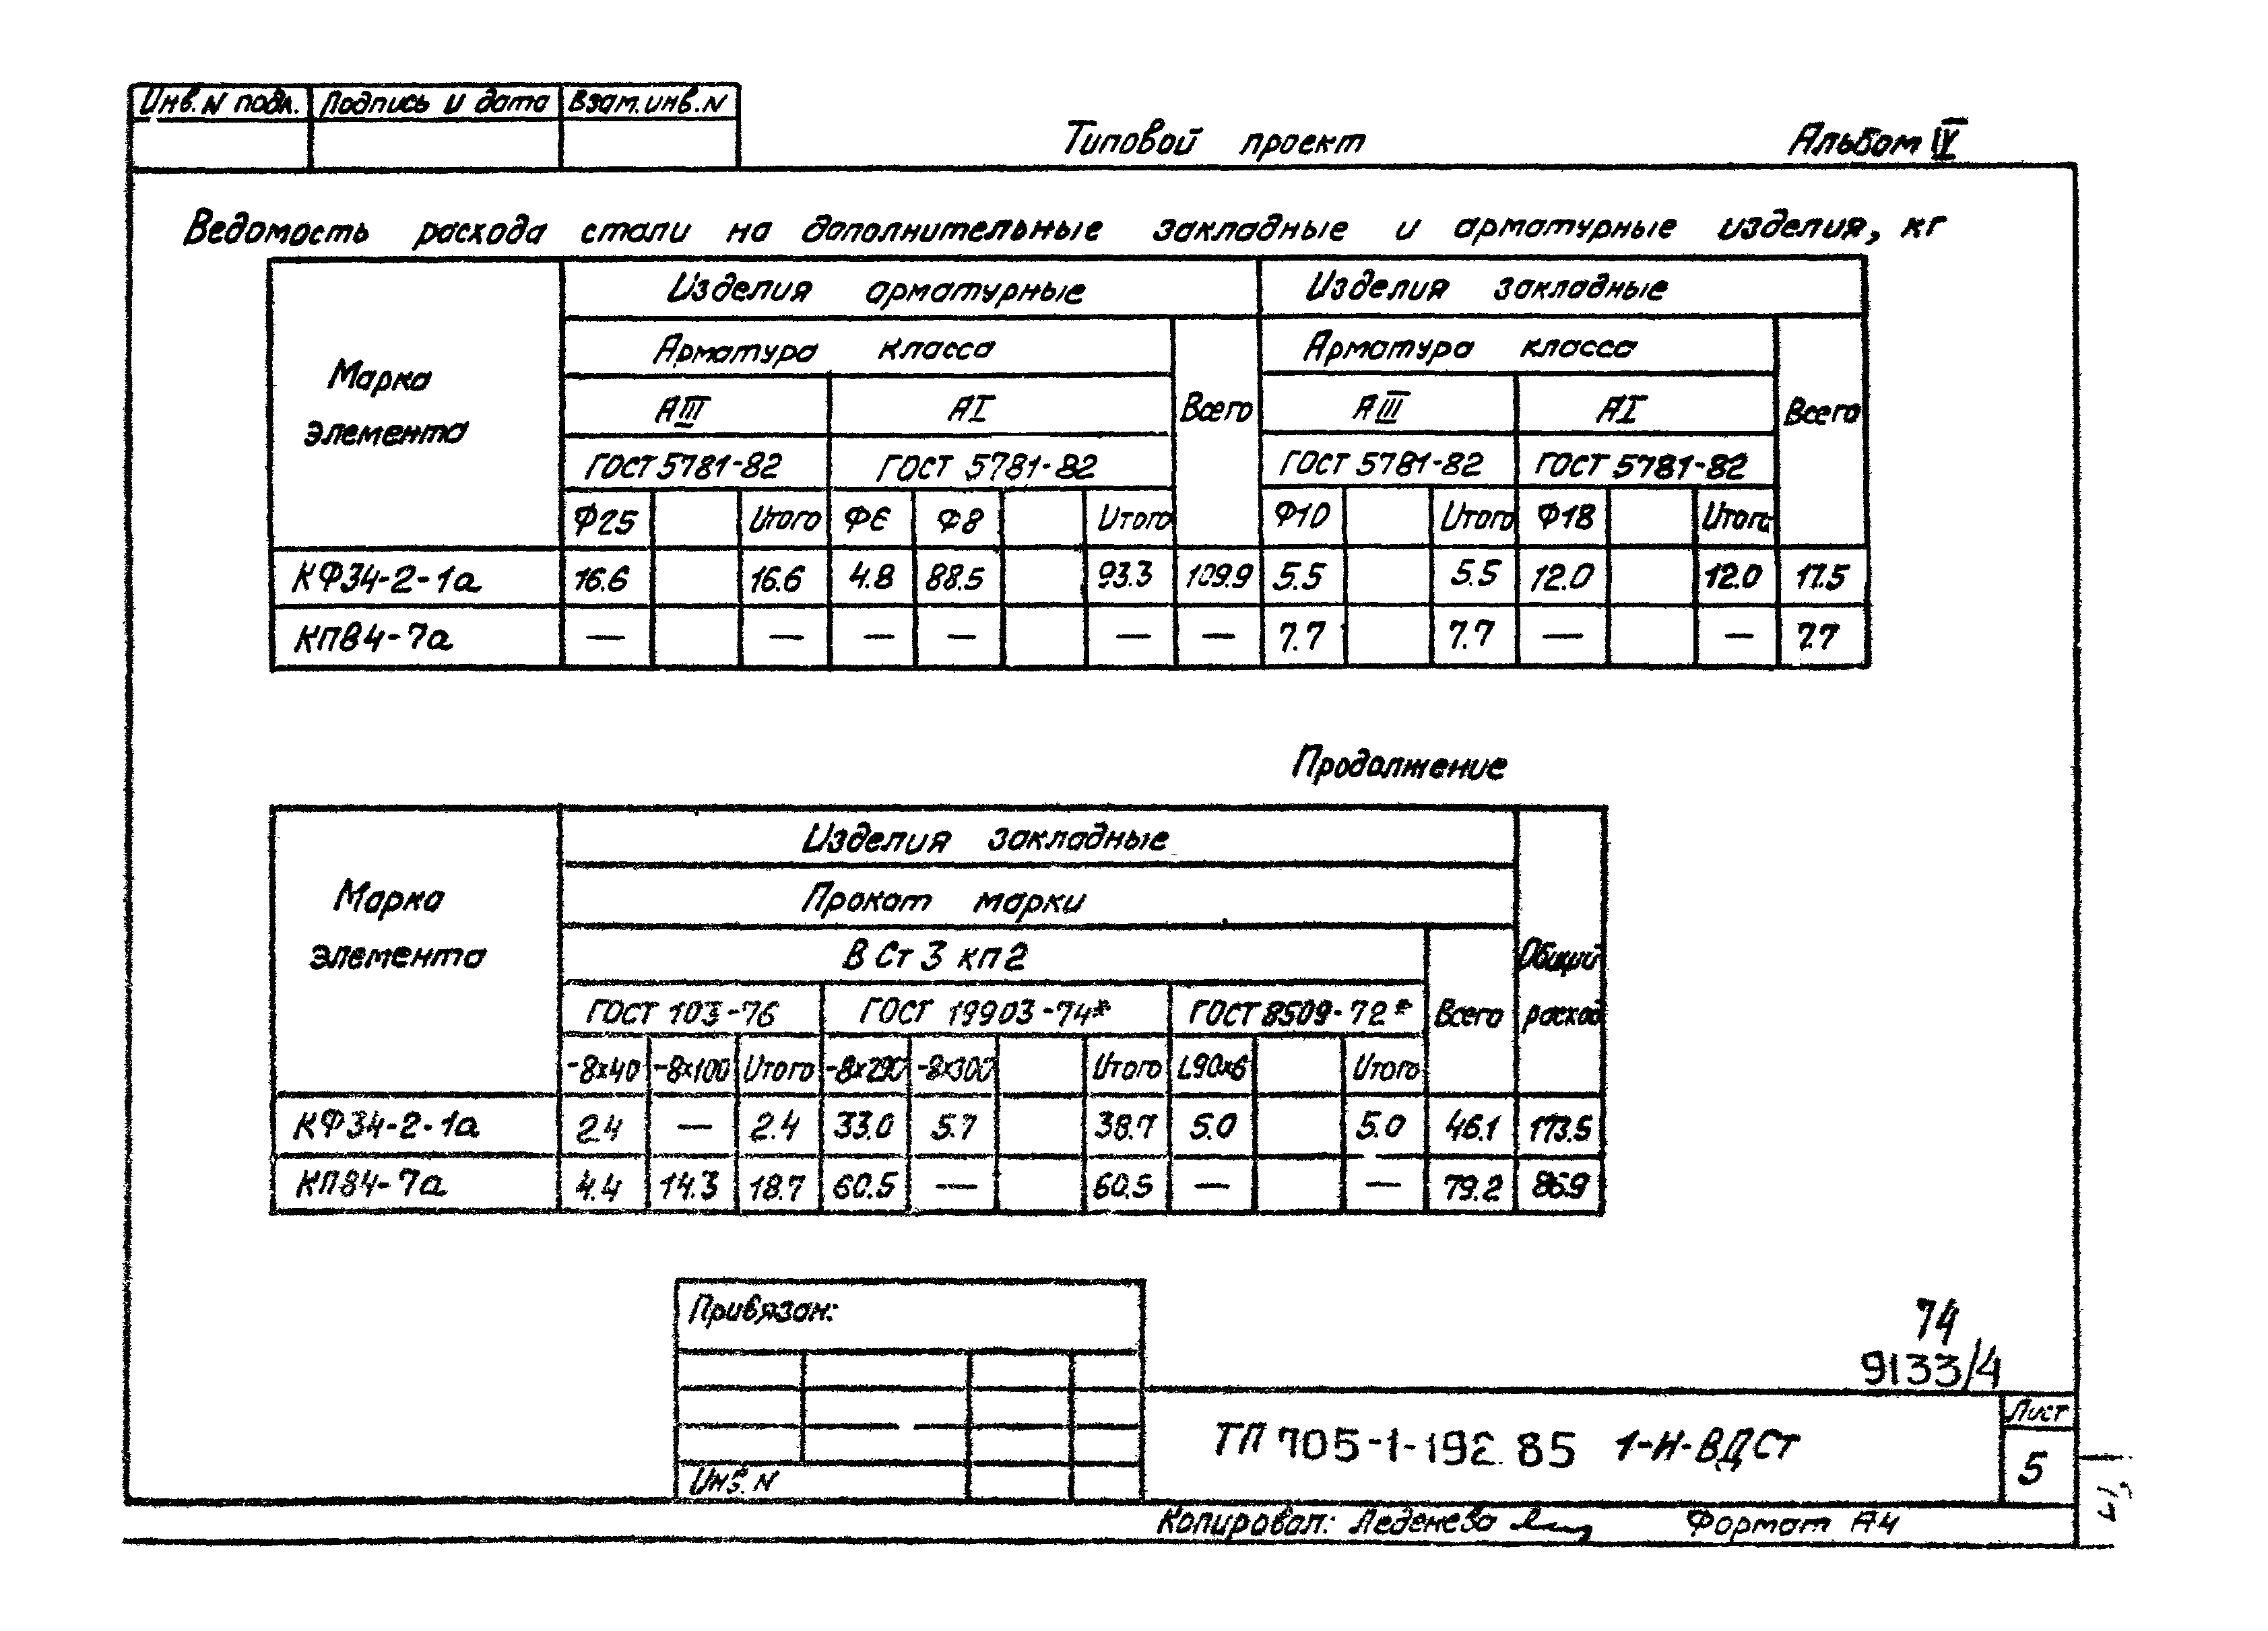 Инв.N подл. Подпись и дата Взам.инв.N
Типовой проект Альбом IV
Ведомость расхода стали на дополнительные закладные и арматурные изделия, кг
Изделия арматурные Изделия закладные
Арматура класса Арматура класса
Марка
элемента
АIII АI Всего АIII АI Всего
ГОСТ 5781-82 ГОСТ 5781-82 ГОСТ 5781-82 ГОСТ 5781-82
Ф25 Итого Ф6 Ф8 Итого Ф10 Итого Ф18 Итого
КФ34-2-1а 16.6 16.6 4.8 88.5 93.3 109.9 5.5 5.5 12.0 12.0 17.5
КП84-7а — — — — — — 7.7 7.7 — — 7.7
Продолжение
Изделия закладные
Марка
элемента
Прокат марки
В Ст 3 кп 2 Общий
расход
ГОСТ 103-76 ГОСТ 19903-74* ГОСТ 8509-72* Всего
-8х40 -8х100 Итого -8х290 -8х300 Итого L90х6 Итого
КФ34-2-1а 2.4 — 2.4 33.0 5.7 38.7 5.0 5.0 46.1 173.5
КП84-7а 4.4 14.3 18.7 60.5 — 60.5 — — 79.2 86.9
Привязан:
74
9133/4
ТП 705-1-192.85 1-Н-ВДСт
Лист
5
Инв. N
Копировал: Леденева Формат А4